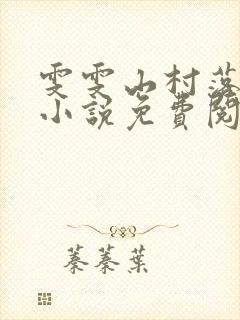 雯雯山村落
小説免費閱
蓁蓁葉